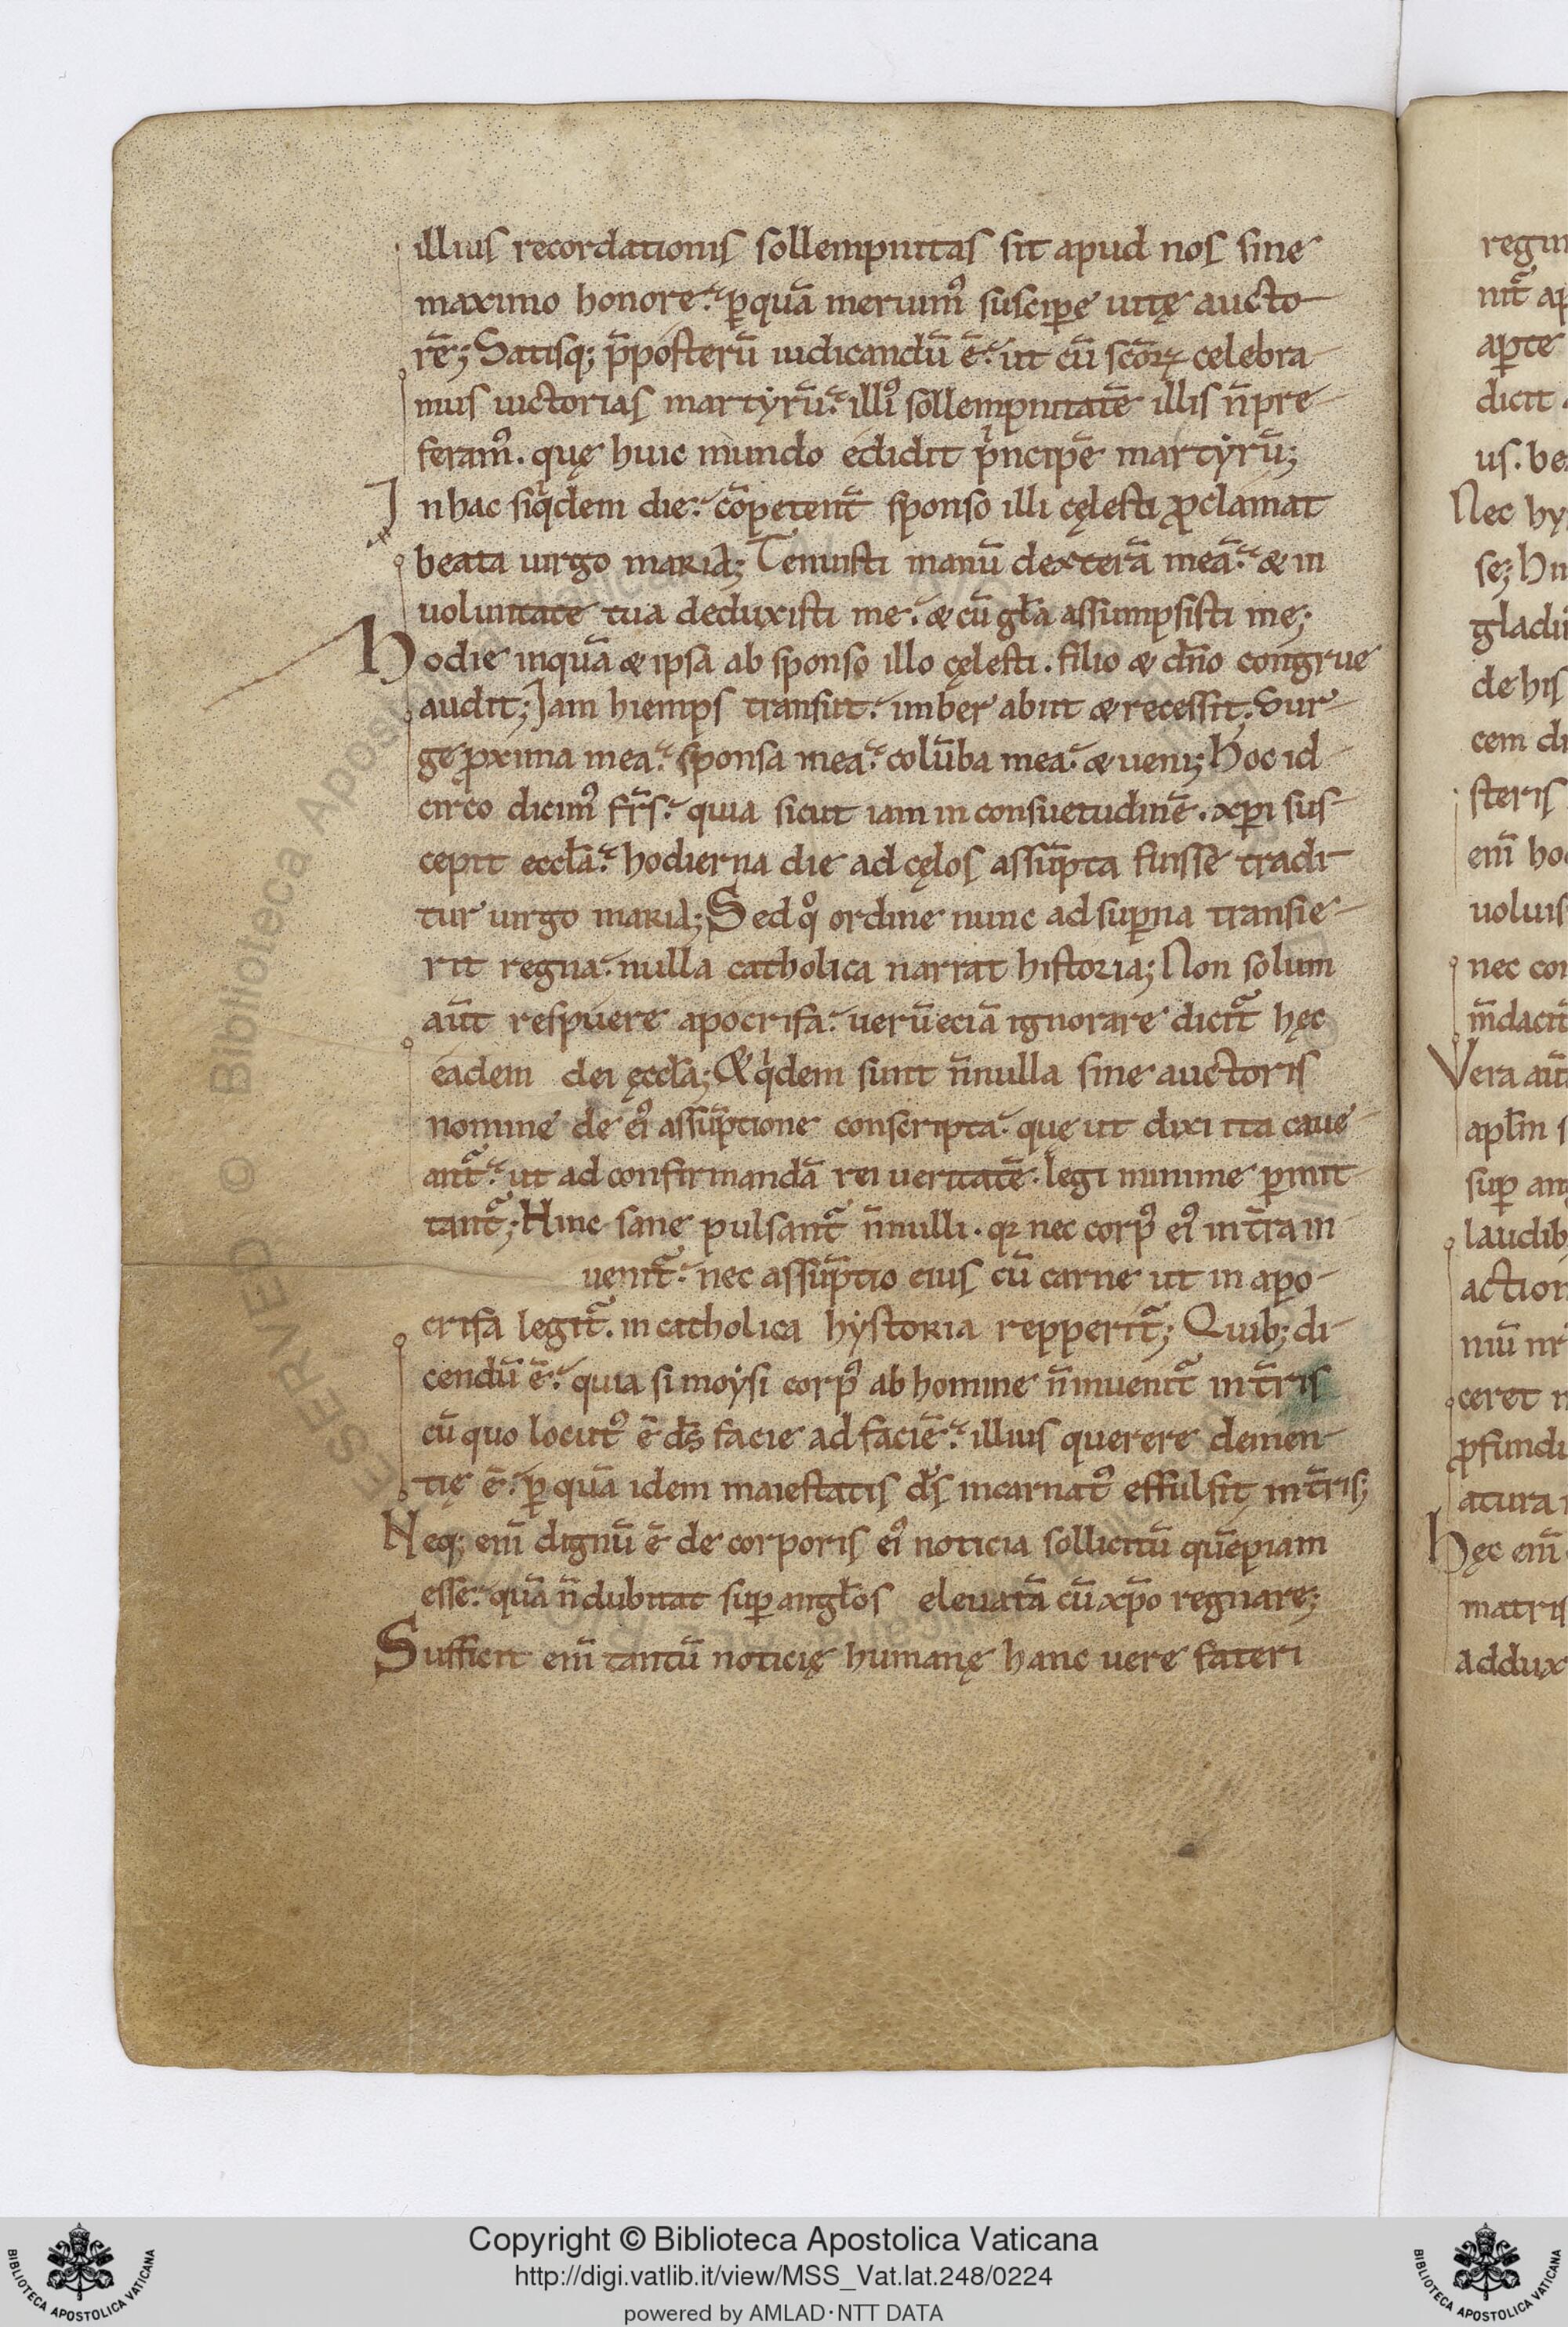 illius recordationis sollempnitas sit apud nos sine
maximo honore. ꝑ quā meruimꝰ suscipe uitę aucto
rē; Satisq; p̄posterū iudicandū ē. ut cū scōꝝ celebra
mus uictorias martyrū. illiꝰ sollempnitatē illis n̄ pre
feramꝰ. quę huic mundo edidit pͥncipē martyrū;
In hac siqͥdem die. cōpetent̄ sponso illi cęlesti ꝓclamat
beata uirgo maria; Tenuisti manū dexterā meā. & in
uoluntate tua deduxisti me. & cū gl̄a assumpsisti me;
Hodie inquā & ipsa ab sponso illo cęlesti. filio & dn̄o congrue
audit; Iam hiemps transiit. imber abiit & recessit. Sur
ge ꝓxima mea. sponsa mea. colūba mea. & ueni; Hoc id
circo dicimꝰ fr̄s. quia sicut iam in consuetudinē. xp̄i sus
cepit eccl̄a. hodierna die ad cęlos assūpta fuisse tradi
tur uirgo maria; Sed qͦ ordine nunc ad suꝑna transie
rit regna. nulla catholica narrat historia; Non solum
aūt respuere apocrifa. uerū eciā ignorare dicit᷑ hęc
eadem dei ęccl̄a; & qͥdem sunt n̄nulla sine auctoris
nomine de eiꝰ assūptione conscripta. que ut dixi ita caue
ant᷑. ut ad confirmandā rei ueritatē. legi minime ꝑmit
tant᷑; Hinc sane pulsant᷑ n̄nulli. qꝛ nec corpꝰ eiꝰ in t̄ra in
uenit᷑. nec assūptio eius cū carne ut in apo
crifa legit᷑. in catholica hystoria repperit᷑; Quib; di
cendū ē. quia si moysi corpꝰ ab homine n̄ inuenit᷑ in t̄ris
cū quo locutꝰ ē ds̄ facie ad faciē. illius querere demen
tię ē. ꝑ quā idem maiestatis ds̄ incarnatꝰ effulsit in t̄ris;
Neq; enī dignū ē de corporis eiꝰ noticia sollicitū quēpiam
esse. quā n̄ dubitat suꝑ angl̄os eleuatā cū xp̄o regnare;
Sufficit enī tantū noticię humanę hanc uere fateri
regin
nit᷑ ap
aꝑte
dicit
us. be
Nec hy
se; Hu
gladiꝰ
de his
cem di
steris
enī ho
uoluis
nec con
m̄daciū
Vera aūt
apl̄m s
suꝑ an
laudib
action
niū nr̄
ceret n
ꝓfundi
atura
Hęc enī
matris
addux
© Biblioteca Apostolica Vaticana
Copyright © Biblioteca Apostolica Vaticana
http://digi.vatlib.it/view/MSS_Vat.lat.248/0224
powered by AMLAD·NTT DATA
BIBLIOTECA APOSTOLICA VATICANA
BIBLIOTECA APOSTOLICA VATICANA